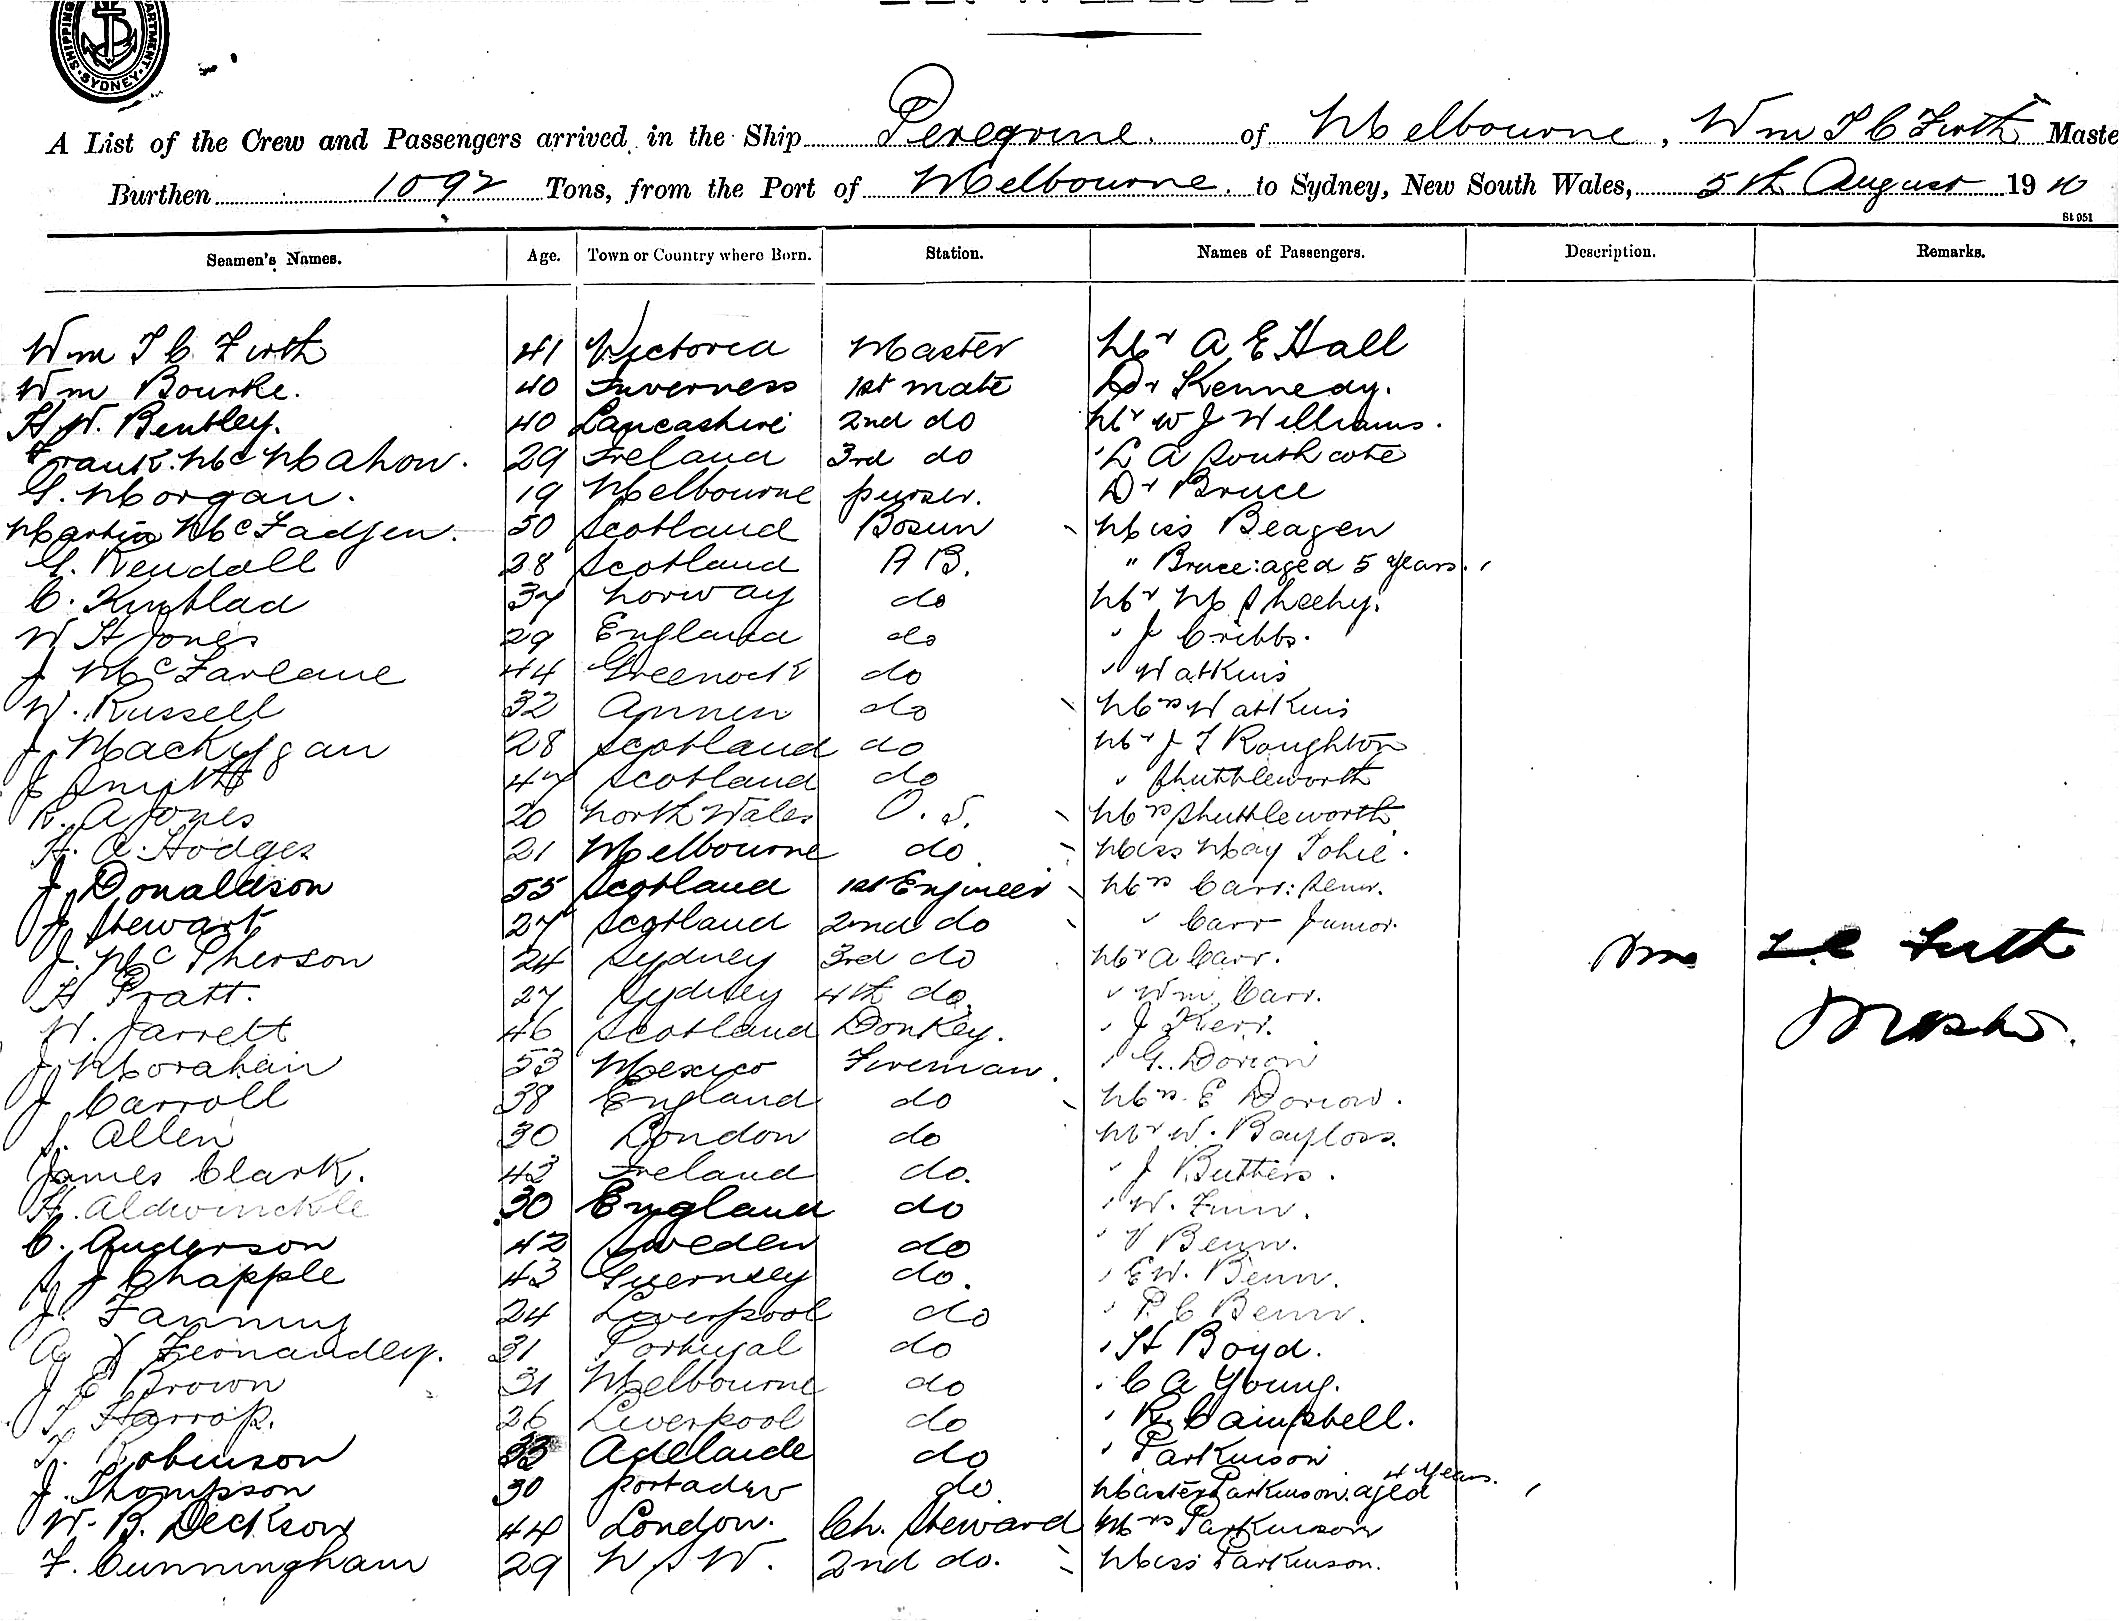 SHIPPING DEPARTMENT SYDNEY
A List of the Crew and Passengers arrived in the Ship Peregrine. of Melbourne, Wm T C Firth Maste
Burthen 1092 Tons, from the Port of Melbourne. to Sydney, New South Wales, 5th August 1910
St 951
Seamen's Names. Age. Town or Country where Born. Station. Names of Passengers. Description. Remarks.
Wm T C Firth 41 Victoria Master Mr A E Hall
Wm Bourke. 40 Inverness 1st mate Dr Kennedy.
H W. Bentley. 40 Lancashire 2nd do Mr W J Williams.
Frank. McMahon. 29 Ireland 3rd do " L A Southcote
G. Morgan. 19 Melbourne purser. Dr Bruce
Martin McFadjen. 50 Scotland Bosun Miss Beagen
G. Kendall 28 Scotland A B. " Bruce: aged 5 years.
C. 37 Norway do Mr M Sheehy.
W H Jones 29 England do " J Cribbs.
J McFarlane 44 Greenock do " Watkins
W. Russell 32 Annen do Mrs Watkins
J 28 Scotland do Mr J T Roughton
J Smith 47 Scotland do " Shuttleworth
R. A Jones 20 North Wales O. S. Mrs Shuttleworth
H. A. Hodges 21 Melbourne do. Miss May
J. Donaldson 55 Scotland 1st Engineer Mrs Carr: Senr.
J Stewart 27 Scotland 2nd do " Carr Junior.
J. McPherson 24 Sydney 3rd do Mr A Carr.
H Pratt. 27 Sydney 4th do. " Wm Carr.
W. Jarrett 46 Scotland Donkey. " J Kerr.
J Morahan 53 Mexico Fireman. " G. Dorion
J Carroll 38 England do Mrs. E Dorion.
S. Allen 30 London do Mr W. Bayloss.
James Clark. 43 Ireland do. " J Butters.
H. Aldwinckle 30 England do " W. Finn.
C. Anderson 42 Sweden do " V Benn.
J Chapple 43 Guernsey do. " E W. Benn.
J. Fanning 24 Liverpool do " P. C Benn.
A Fernandez. 31 Portugal do " H Boyd.
J E Brown 31 Melbourne do " C A Young.
T Harrop. 26 Liverpool do " R. Campbell.
T. Robinson 33 Adelaide do " Parkinson
J. Thompson 30 do. Master Parkinson. aged 4 Years.
W. B. Deckson 44 London. Ch. Steward Mrs Parkinson
F. Cunningham 29 N S W. 2nd do. Miss Parkinson.
Wm T C Firth
Master.